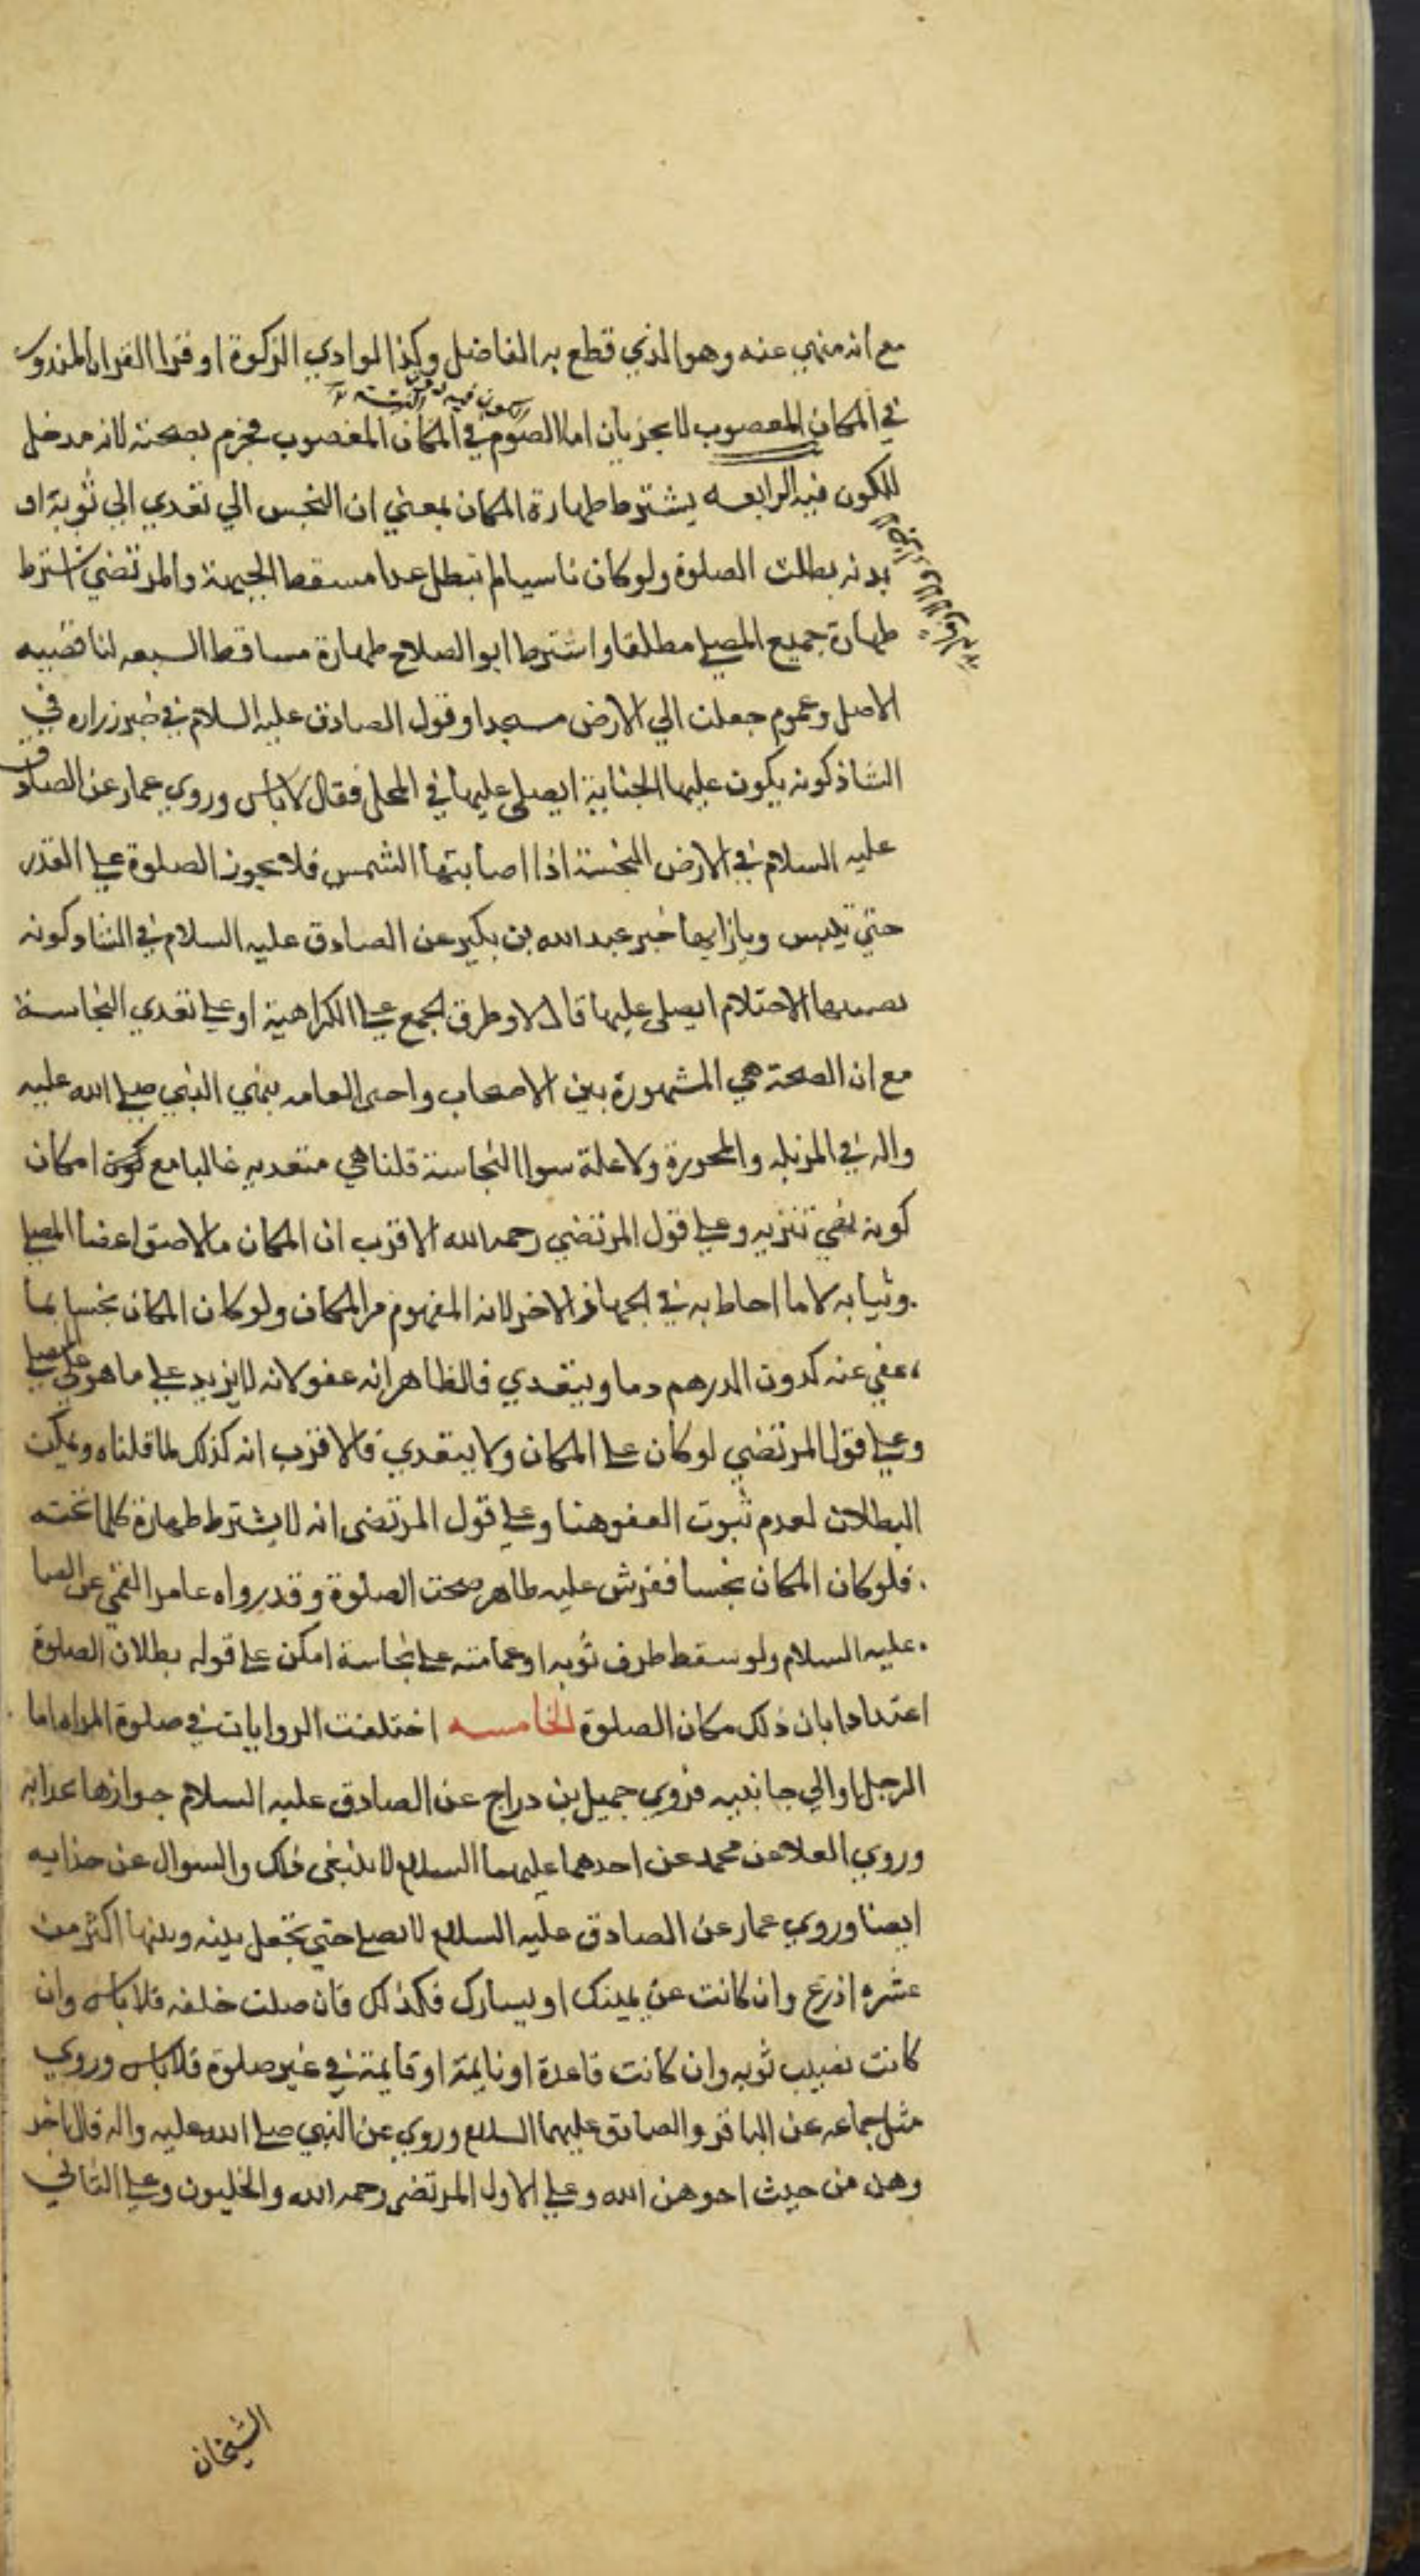 مع انه منهي عنه وهو الذي قطع به الفاضل وكذا لو ادي الزكوة او قرا القران المنذور
في المكان المغصوب لا يجزيان اما الصوم في المكان المغصوب فجزم بصحته لانه مدخل
للكون فيه الرابعه يشترط طهارة المكان بمعني ان النجس الي تعدي الي ثوبة او
بدنه بطلت الصلوة ولو كان ناسيا لم تبطل عدا مسقط الجبهة والمرتضي اشترط
طهارة جميع المصلي مطلقا واشترط ابو الصلاح طهارة مساقط السبعه لنا قضيه
الاصل وعموم جعلت الي الارض مسجدا وقول الصادق عليه السلام في خبر زراره في
الشاذكونه يكون عليها الجنابة ايصلي عليها في المحمل فقال لا باس وروي عمار عن الصادق
عليه السلام في الارض النجسة اذا اصابتها الشمس فلا يجوز الصلوة علي القذر
حتي تيبس وبازايها خبر عبد الله بن بكير عن الصادق عليه السلام في الشاذكونه
يصيبها الاحتلام ايصلي عليها قال لا وطرق الجمع علي الكراهية او علي تعدي النجاسة
مع ان الصحة هي المشهورة بين الاصحاب واحتج العامه بنهي النبي صلي الله عليه
واله في المزبله والمجزرة ولا علة سوا النجاسة قلنا هي متعديه غالبا مع امكان
كونه نهي تنزيه وعلي قول المرتضي رحمه الله الاقرب ان المكان ما لاصق اعضا المصلي
وثيابه لا ما احاط به في الجهات الاخر لانه المفهوم من المكان ولو كان المكان نجسا بما
عفي عنه كدون الدرهم دما ويتعدي فالظاهر انه عفو لانه لا يزيد علي ما هو علي المصلي
وعلي قول المرتضي لو كان علي المكان ولا يتعدي فالاقرب انه كذلك لما قلناه ويمكن
البطلان لعدم ثبوت العفو هنا وعلي قول المرتضي انه لا يشترط طهارة كلما تحته
فلو كان المكان نجسا ففرش عليه طاهر صحت الصلوة وقد رواه عامر القمي عن الصا
عليه السلام ولو سقط طرف ثوبه او عمامته علي نجاسة امكن علي قوله بطلان الصلوة
اعتدادا بان ذلك مكان الصلوة الخامسه اختلفت الروايات في صلوة المراه اما
الرجل او الي جانبيه فروي جميل بن دراج عن الصادق عليه السلام جوازها
وروي العلا عن محمد عن احدهما عليهما السلام لا ينبغي ذلك والسوال عن حذايه
ايضا وروي عمار عن الصادق عليه السلام لا يصلي حتي يجعل بينه وبينها اكثر من
عشره اذرع وان كانت عن يمينك او يسارك فكذلك فان صلت خلفه فلا باس وان
كانت تصيب ثوبه وان كانت قاعدة او نايمة او قايمة في غير صلوة فلا باس وروي
مثل جماعه عن الباقر والصادق عليهما السلام وروي عن النبي صلي الله عليه واله قال اخر
وهن من حيث اخرهن الله وعلي الاول المرتضي رحمه الله والحليون وعلي الثاني
الشيخان